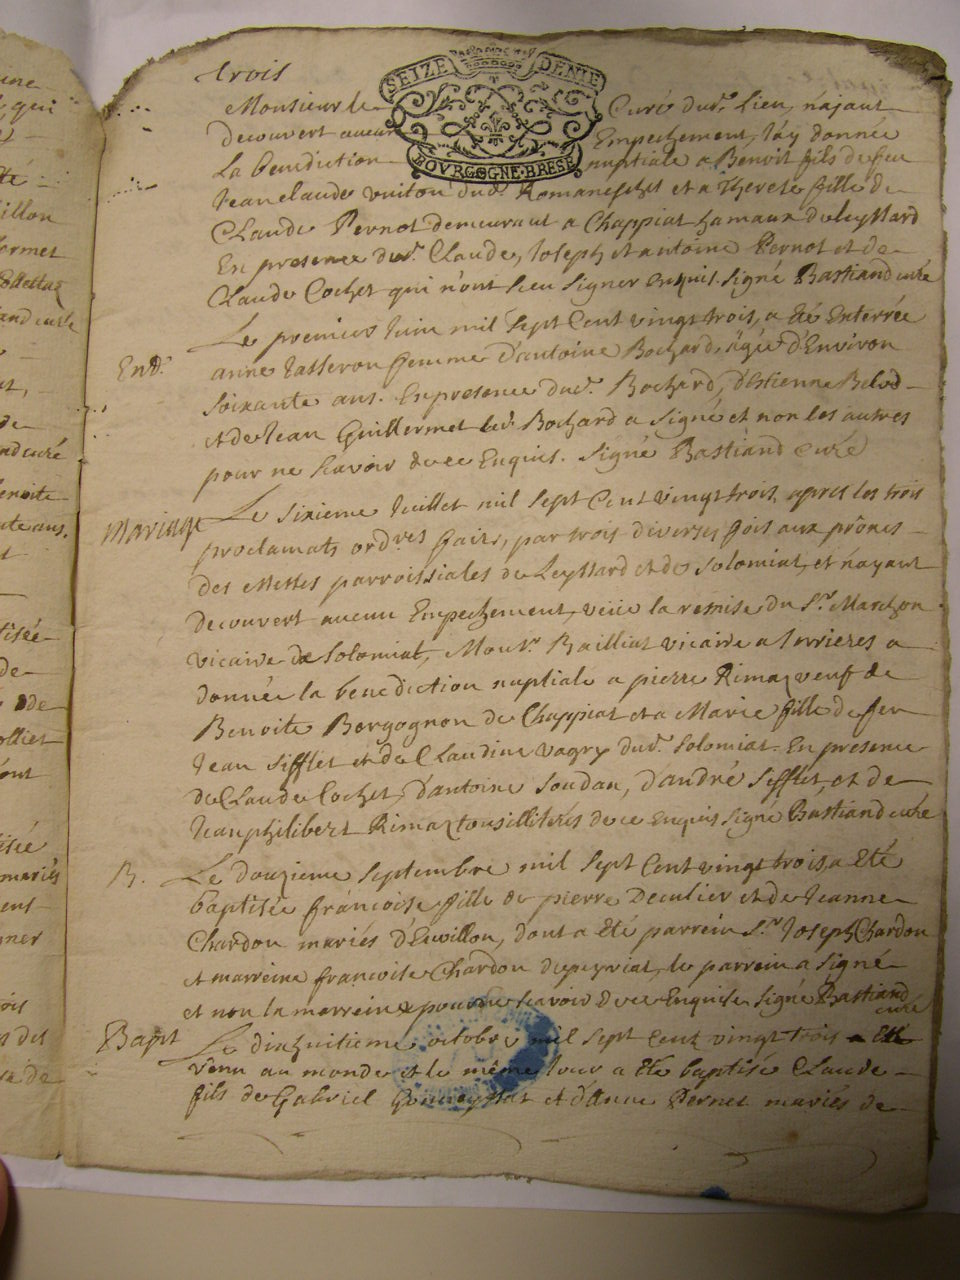 trois
SEIZE DENIE
BOVRGOGNE·BRESE
Monsieur le Curé dud. Lieu, n'ajant
decouvert aucun Empechement, j'ay donnée
La benediction nuptiale a Benoit fils de feu
Jean claude vuiton dud. Romaneschet et a Therese fille de
Claude Pernot demeurant a Chappiat hamaux de leyssard
En presence dud. Claude, Joseph et antoine Pernot et de
Claude Cochet qui n'ont sceu signer enquis. signé Bastiand curé
Ent.
Le premier Juin mil sept Cent vingt trois, a été Enterrée
anne Tasseron femme d'antoine Bochard, agée d'Environ
soixante ans. En presence dud. Bochard, d'Estienne Belod
et de Jean Guillermet led. Bochard a signé et non les autres
pour ne scavoir de ce Enquis. signé Bastiand curé
Mariage
Le sixieme Juillet mil sept Cent vingt trois, apres les trois
proclamats ord.res faits, par trois diverses fois aux prônes
des Messes parroissiales de Leyssard et de solomiat, et n'ayant
decouvert aucun Empechement, veüe la remise du S.r Marchon
vicaire de solomiat, Mons.r Bailliat vicaire a Serrieres a
donnée la benediction nuptiale a pierre Rimaz veuf de
Benoite Borgognon de Chappiat et a Marie fille de feu
Jean sifflet et de Claudine vagry dud. solomiat. En presence
de Claude Cochet, d'antoine soudan, d'andré sifflet, et de
Jean philibert Rimaz tous illiterés de ce Enquis signé Bastiand curé
B.
Le douzieme septembre mil sept Cent vingt trois a Eté
baptisée françoise fille de pierre Deculier et de Jeanne
Chardon mariés d'Euvillon, dont a Eté parrein S.r Joseph Chardon
et marreine françoise Chardon de peyriat, le parrein a signé
et non la marreine pour ne scavoir de ce Enquise signé Bastiand
curé
Bapt
Le dixhuitieme octobre mil sept Cent vingt trois a Eté
venu au monde et le même Jour a Eté baptisé Claude
fils de Gabriel et d'Anne Pernet mariés de